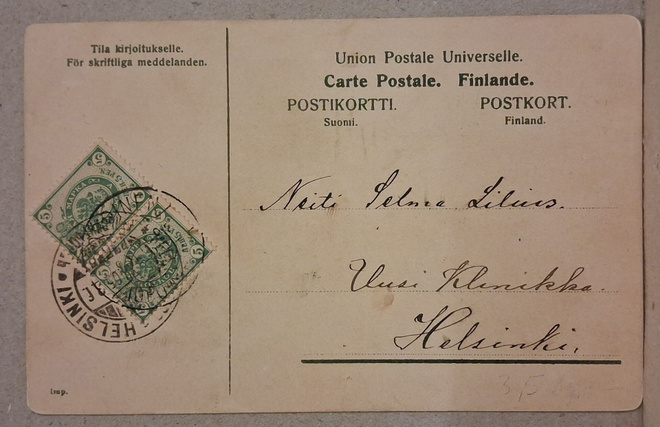 Tila kirjoitukselle.
För skriftliga meddelanden.
Union Postale Universelle.
Carte Postale. Finlande.
POSTIKORTTI. POSTKORT.
Suomi. Finland.
5
5
5
5
Neiti Selma Lilius.
Uusi Klinikka.
Helsinki.
HELSINKI
Imp.